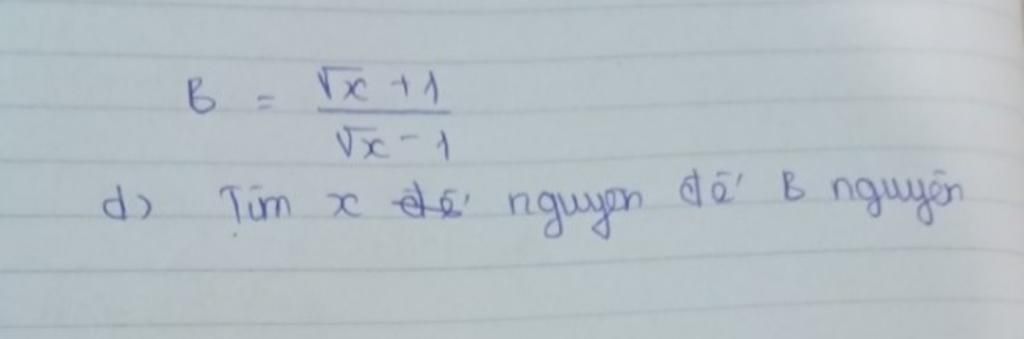 B = \frac{\sqrt{x} + 1}{\sqrt{x} - 1}
d) Tìm x nguyen để B nguyên